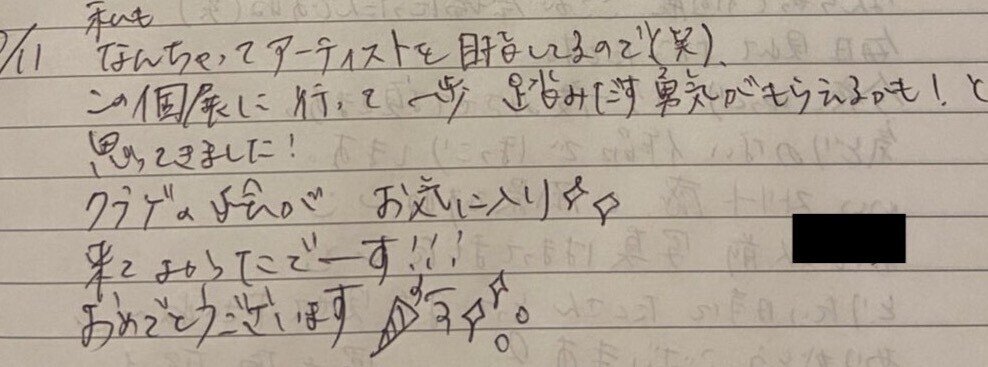 9/11 私も
なんちゃってアーティストを目指してるので(笑)、
この個展に行って一歩 踏みだす勇気がもらえるかも!と
思ってきました!
クラゲの絵が お気に入り
来てよかったでーす!!!
おめでとうございます